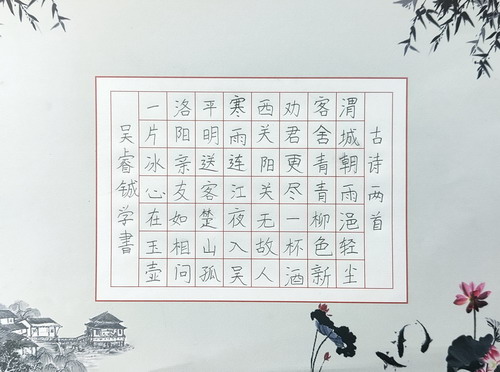 古诗两首
渭城朝雨浥轻尘
客舍青青柳色新
劝君更尽一杯酒
西关阳关无故人
寒雨连江夜入吴
平明送客楚山孤
洛阳亲友如相问
一片冰心在玉壶
吴睿铖学書